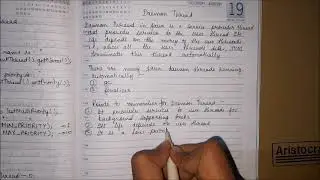 Daemon Thread
19
Daemon Thread in Java is a service provider thread
that provides services to the user thread. Its
life depends on the mercy of user threads
i.e. when all the user threads dies, JVM
terminates this thread automatically.
There are many java daemon threads running
automatically
① gc
② finalizer
Points to remember for Daemon Thread
① It provides services to user threads for
background supporting tasks
② Its life depends on user thread
③ It is a low prio
name is:"
priority is:
MIN_PRIORITY);
MAX_PRIORITY);
Aristocra